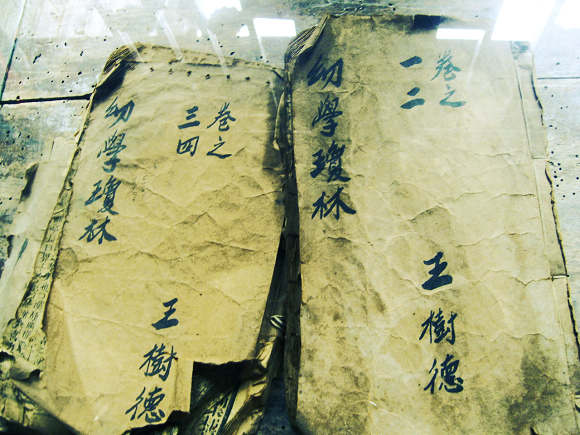 幼學瓊林
卷之
一二
王樹德
幼學瓊林
卷之
三四
王樹德